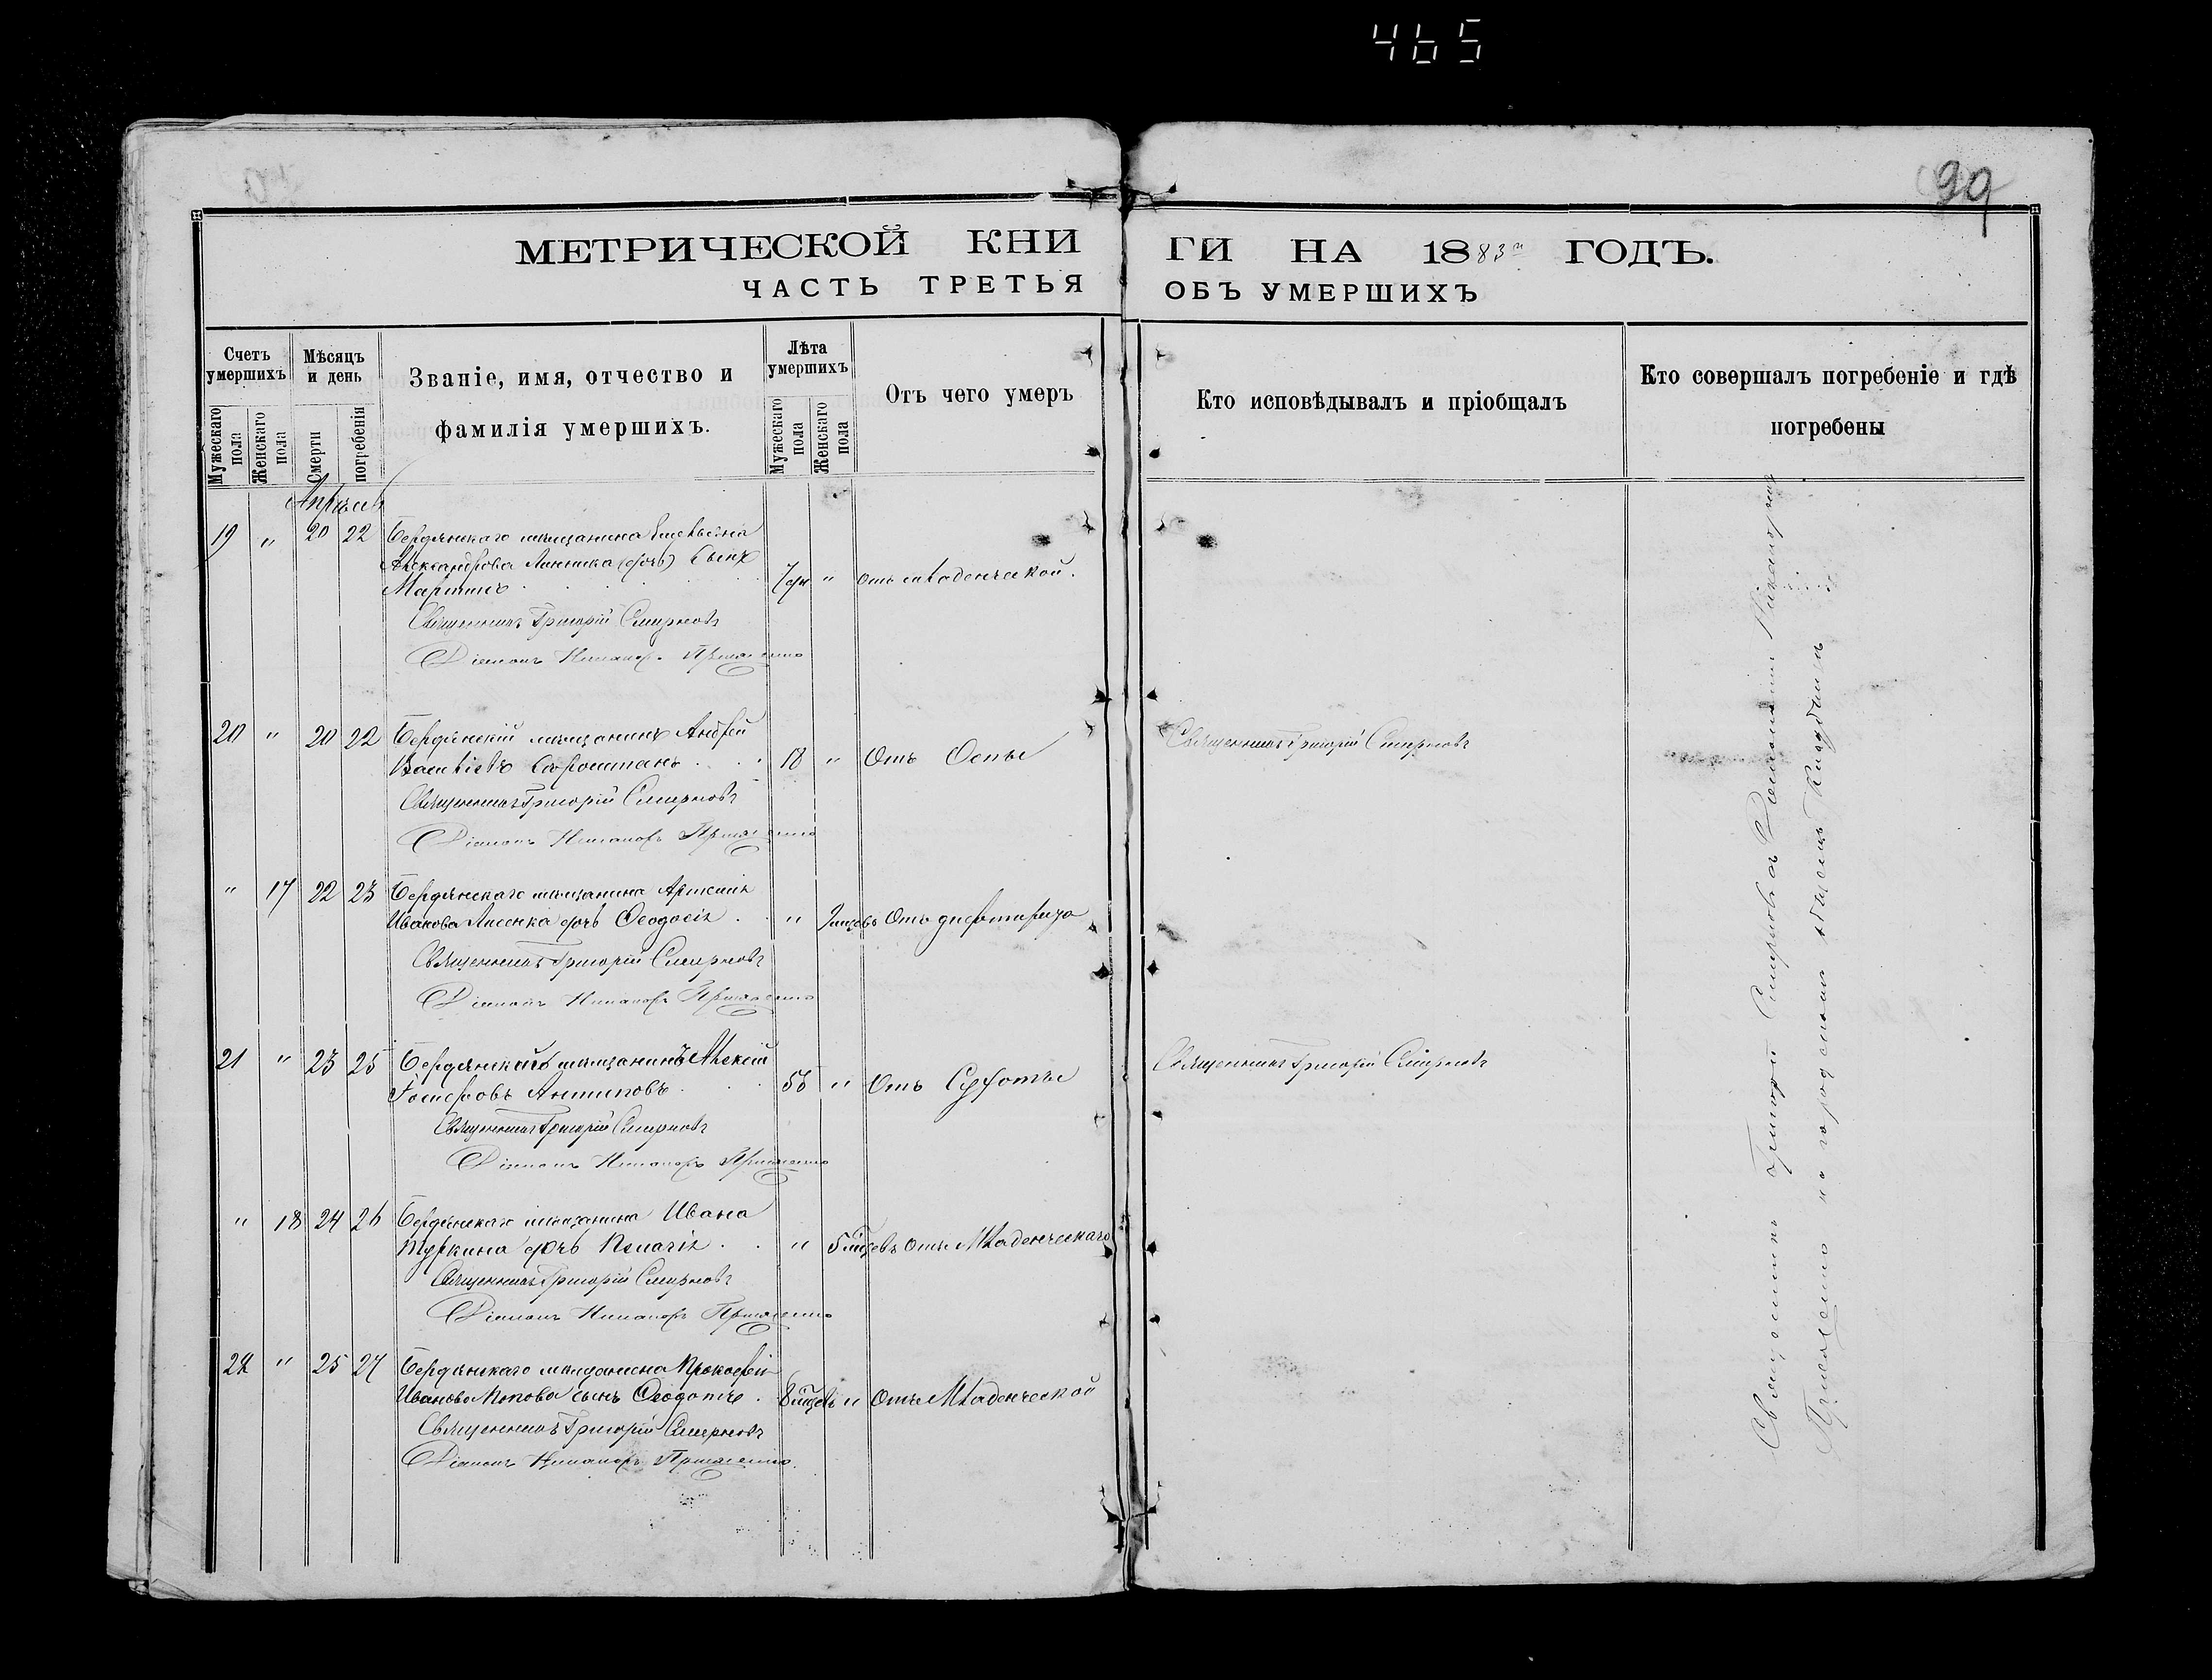 465
99
МЕТРИЧЕСКОЙ КНИГИ НА 1883й ГОДЪ.
ЧАСТЬ ТРЕТЬЯ ОБЪ УМЕРШИХЪ
Счетъ умершихъ
Мужескаго пола
Женскаго пола
Мѣсяцъ и день
Смерти
погребенія
Званіе, имя, отчество и
фамилія умершихъ.
Лѣта умершихъ
Мужескаго пола
Женскаго пола
Отъ чего умеръ
Кто исповѣдывалъ и пріобщалъ
Кто совершалъ погребеніе и гдѣ
погребены
Апрѣль
19 " 20 22 Бердянскаго мѣщанина
Александрова (дочь) Сынъ
Мартинъ 7 дн " отъ младенческой.
Священникъ Григорій Смирновъ
Діаконъ Никаноръ
20 " 20 22 Бердянскій мѣщанинъ Андрей
Васильевъ 18 " Отъ Оспы
Священникъ Григорій Смирновъ
Священникъ Григорій Смирновъ
Діаконъ Никаноръ
" 17 22 23 Бердянскаго мѣщанина Артемія
Иванова Лисенка дочь Ѳеодосія " мцевъ Отъ дифтирита
Священникъ Григорій Смирновъ
Діаконъ Никаноръ
21 " 23 25 Бердянскій мѣщанинъ Алексѣй
Антиповъ " Отъ Сухоты
Священникъ Григорій Смирновъ
Священникъ Григорій Смирновъ
Діаконъ Никаноръ
" 18 24 26 Бердянскаго мѣщанина Ивана
Туркина дочь Пелагія " 5 мцевъ отъ Младенческаго
Священникъ Григорій Смирновъ
Діаконъ Никаноръ
22 " 25 27 Бердянскаго мѣщанина Прокофія
Иванова Попова сынъ Ѳеодотъ 8 мцевъ " Отъ Младенческой
Священникъ Григорій Смирновъ
Діаконъ Никаноръ
Священникъ Григорій Смирновъ Діакономъ Никаноромъ
на городскомъ общемъ Кладбищѣ